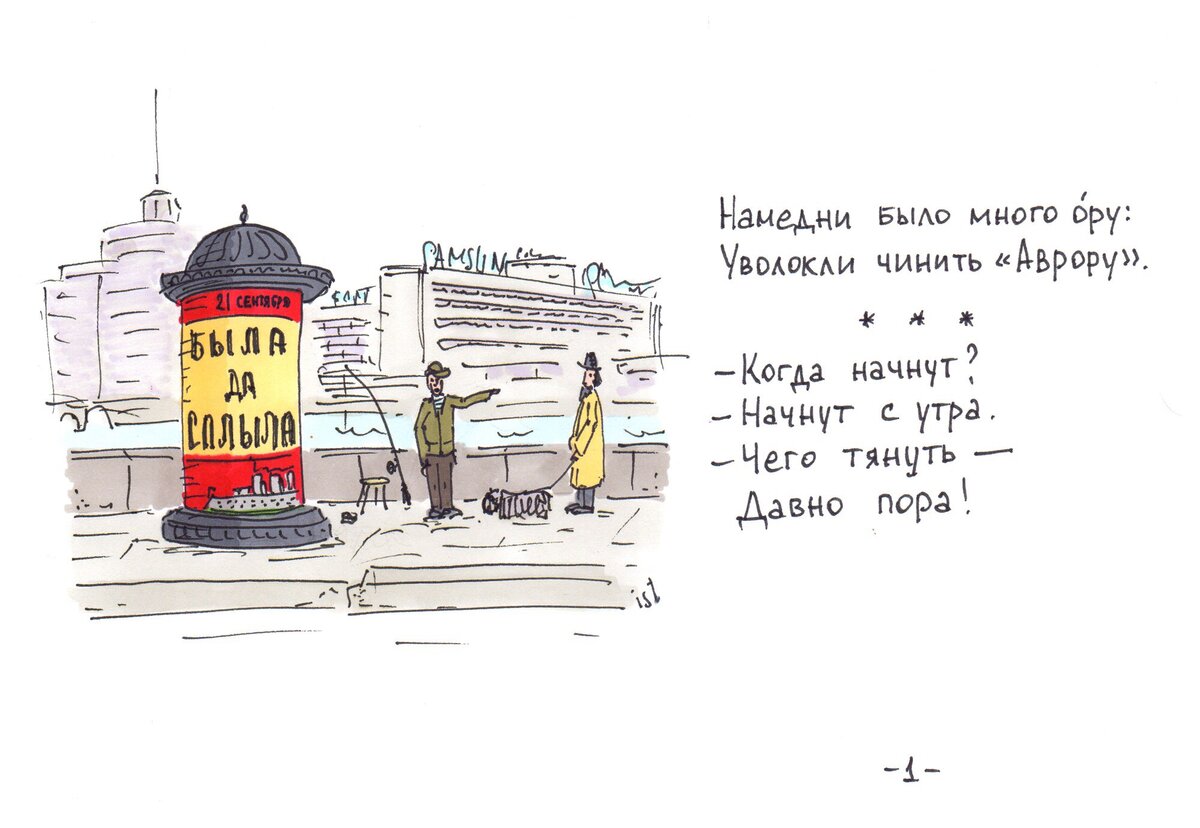 21 СЕНТЯБРЯ
БЫЛА
ДА
СПЛЫЛА
SAMSUN
ist
Намедни было много о́ру:
Уволокли чинить «Аврору».
* * *
– Когда начнут?
– Начнут с утра.
– Чего тянуть –
Давно пора!
-1-